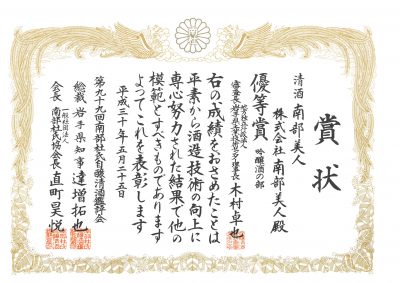 賞状
清酒 南部美人
株式会社南部美人殿
優等賞 吟醸酒の部
木村卓也
右の成績をおさめたことは
平素から酒造技術の向上に
専心努力された結果で他の
模範とすべきものであります
よってこれを表彰します
平成三十年五月二十五日
第九十九回南部杜氏自醸清酒鑑評会
総裁 岩手県知事 達増拓也
一般社団法人
会長 南部杜氏協会会長